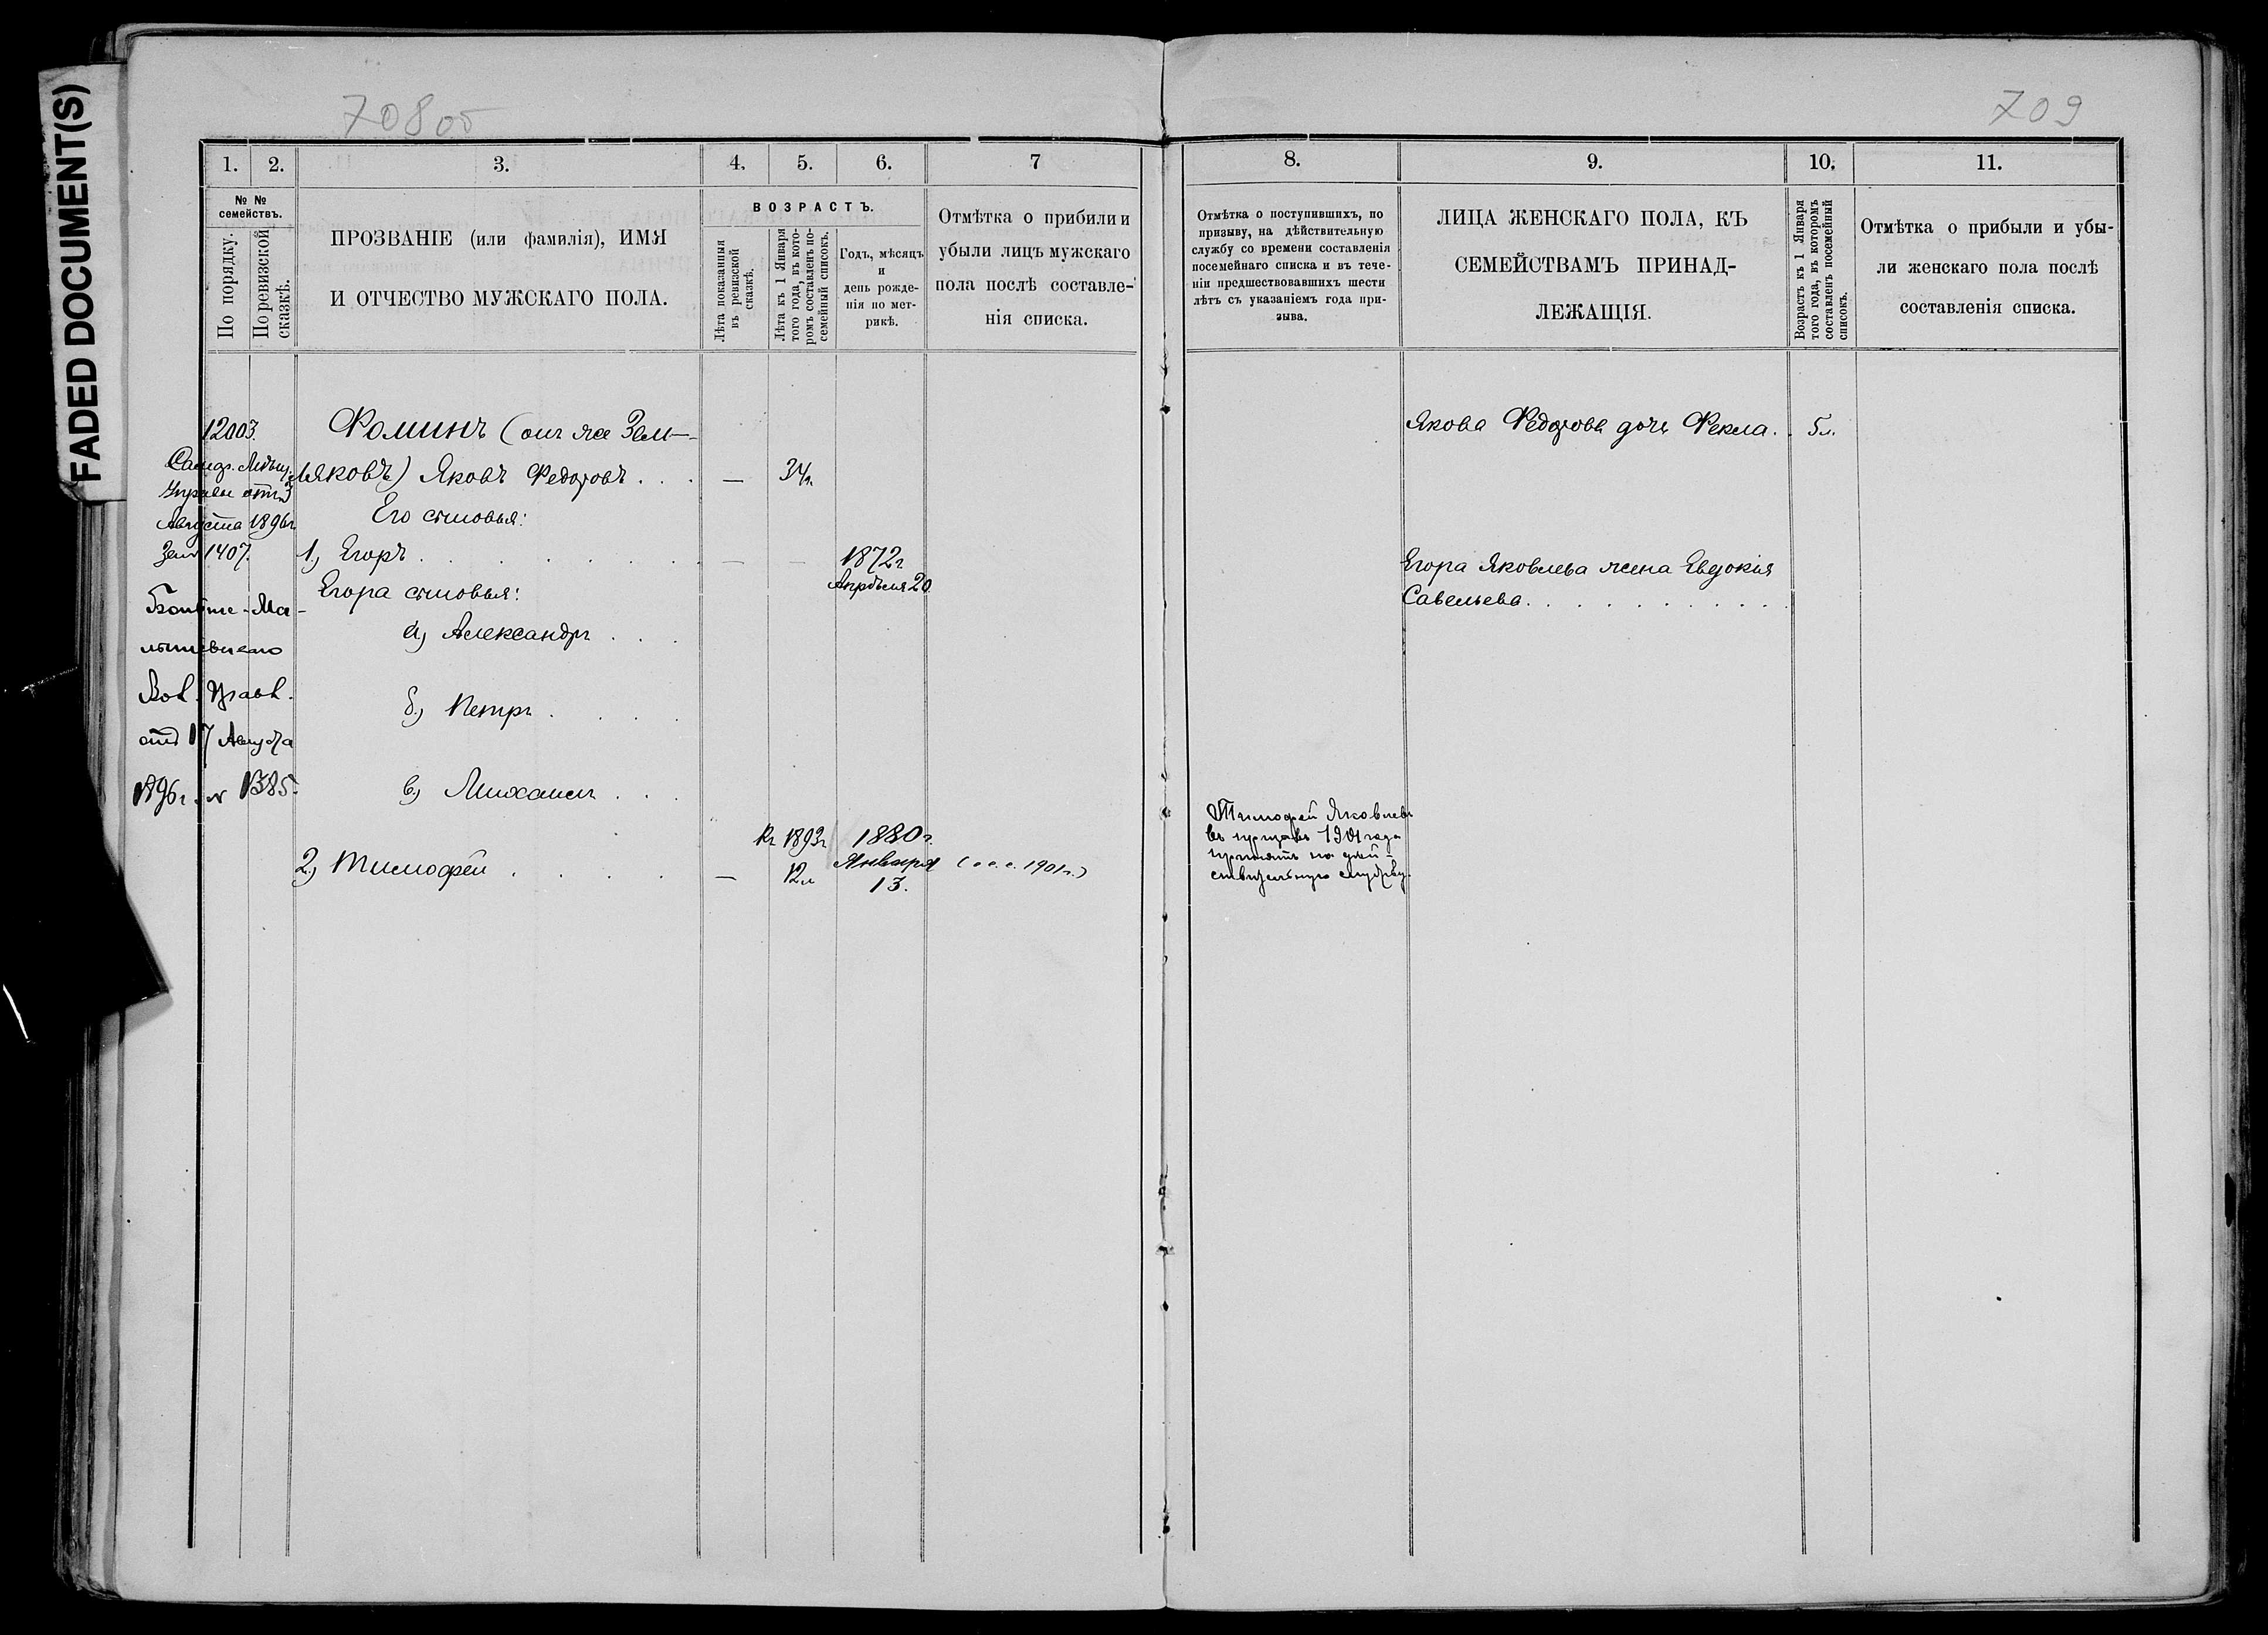 FADED DOCUMENT(S)
708 об
709
1.
2.
3.
4.
5.
6.
7
8.
9.
10.
11.
№ №
семействъ.
По порядку.
По ревизской
сказкѣ.
ПРОЗВАНІЕ (или фамилія), ИМЯ
И ОТЧЕСТВО МУЖСКАГО ПОЛА.
ВОЗРАСТЪ.
Лѣта показанныя
въ ревизской
сказкѣ.
Лѣта къ 1 Января
того года, въ кото-
ромъ составленъ по-
семейный списокъ.
Годъ, мѣсяцъ
и
день рожде-
нія по мет-
рикѣ.
Отмѣтка о прибыли и
убыли лицъ мужскаго
пола послѣ составле-
нія списка.
Отмѣтка о поступившихъ, по
призыву, на дѣйствительную
службу со времени составленія
посемейнаго списка и въ тече-
ніи предшествовавшихъ шести
лѣтъ съ указаніемъ года при-
зыва.
ЛИЦА ЖЕНСКАГО ПОЛА, КЪ
СЕМЕЙСТВАМЪ ПРИНАД-
ЛЕЖАЩІЯ.
Возрастъ къ 1 Января
того года, въ которомъ
составленъ посемейный
списокъ.
Отмѣтка о прибыли и убы-
ли женскаго пола послѣ
составленія списка.
12003.
Управы отъ 3
Августа 1896г.
1407.
отъ 17 Августа
1896г. № 1385.
Фоминъ (онъ же Зем-
ляковъ) Яковъ Федоровъ . . . — 34л.
Его сыновья:
1, Егоръ . . . . . . . — — 1872г.
Апрѣля 20
Егора сыновья:
а, Александръ . . .
б, Петръ . . . .
в, Михаилъ . . .
Къ 1893г. 1880г.
2, Тимофей . . . . — 12л. Января (1901г.)
13.
Тимофей Яковлевъ
въ призывъ 1901 года
принятъ на дѣй-
ствительную службу.
Якова Федорова дочь Фекла. . 5л.
Егора Яковлева жена Евдокія
Савельева. . . . . . . . . . . .